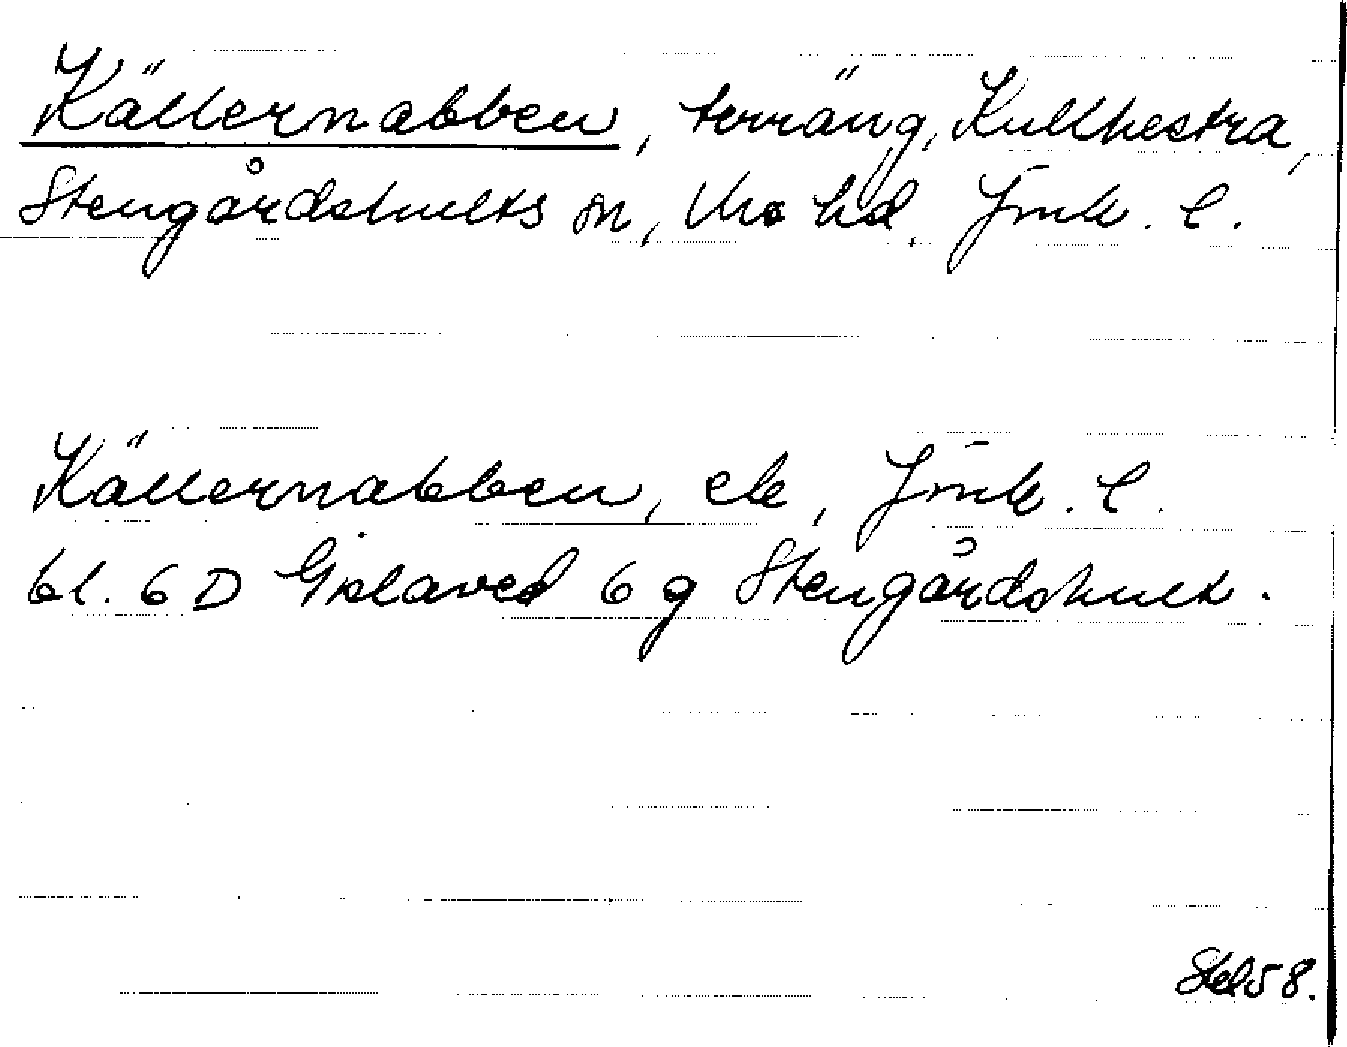 Källernabben, terräng, Kullhestra,
Stengårdshults sn, Mo hd, Jmk. l.
Källernabben, ek, Jmk. l.
bl. 6 D Gislaved 6 g Stengårdshult.
58.